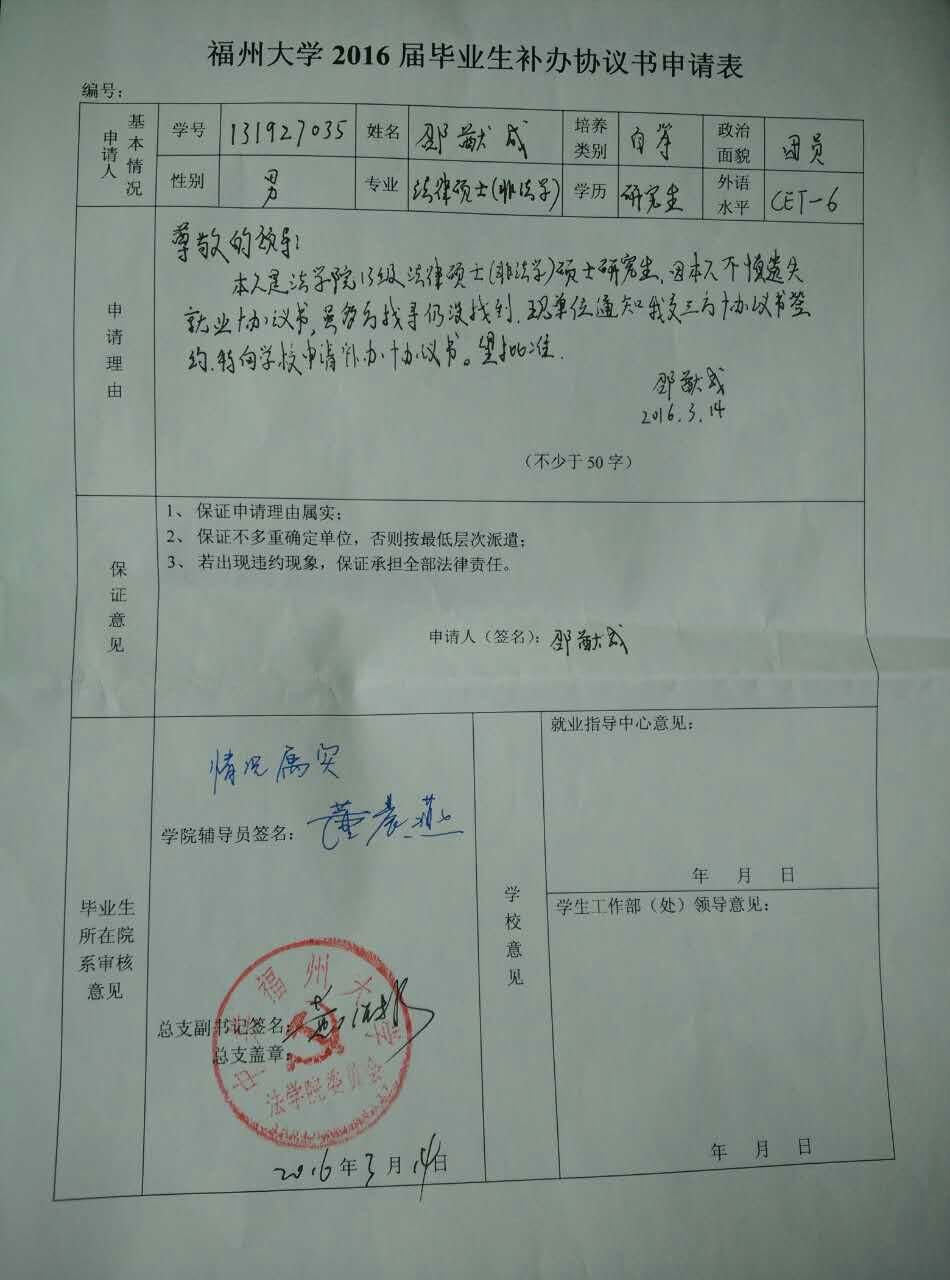 福州大学 2016 届毕业生补办协议书申请表
编号：
申请人 基本情况 学号 131927035 姓名 邵猷成 培养类别 自筹 政治面貌 团员
性别 男 专业 法律硕士(非法学) 学历 研究生 外语水平 CET-6
申请理由
尊敬的领导：
本人是法学院13级法律硕士(非法学)硕士研究生，因本人不慎遗失
就业协议书，虽多方找寻仍没找到，现单位通知我交三方协议书签
约，特向学校申请补办协议书。望批准．
邵猷成
2016.3.14
（不少于 50 字）
保证意见
1、 保证申请理由属实；
2、 保证不多重确定单位，否则按最低层次派遣；
3、 若出现违约现象，保证承担全部法律责任。
申请人（签名）：邵猷成
毕业生所在院系审核意见
情况属实
学院辅导员签名：
总支副书记签名：
总支盖章：
中共福州大学
法学院委员会
2016 年 3 月 14 日
学校意见
就业指导中心意见：
年 月 日
学生工作部（处）领导意见：
年 月 日